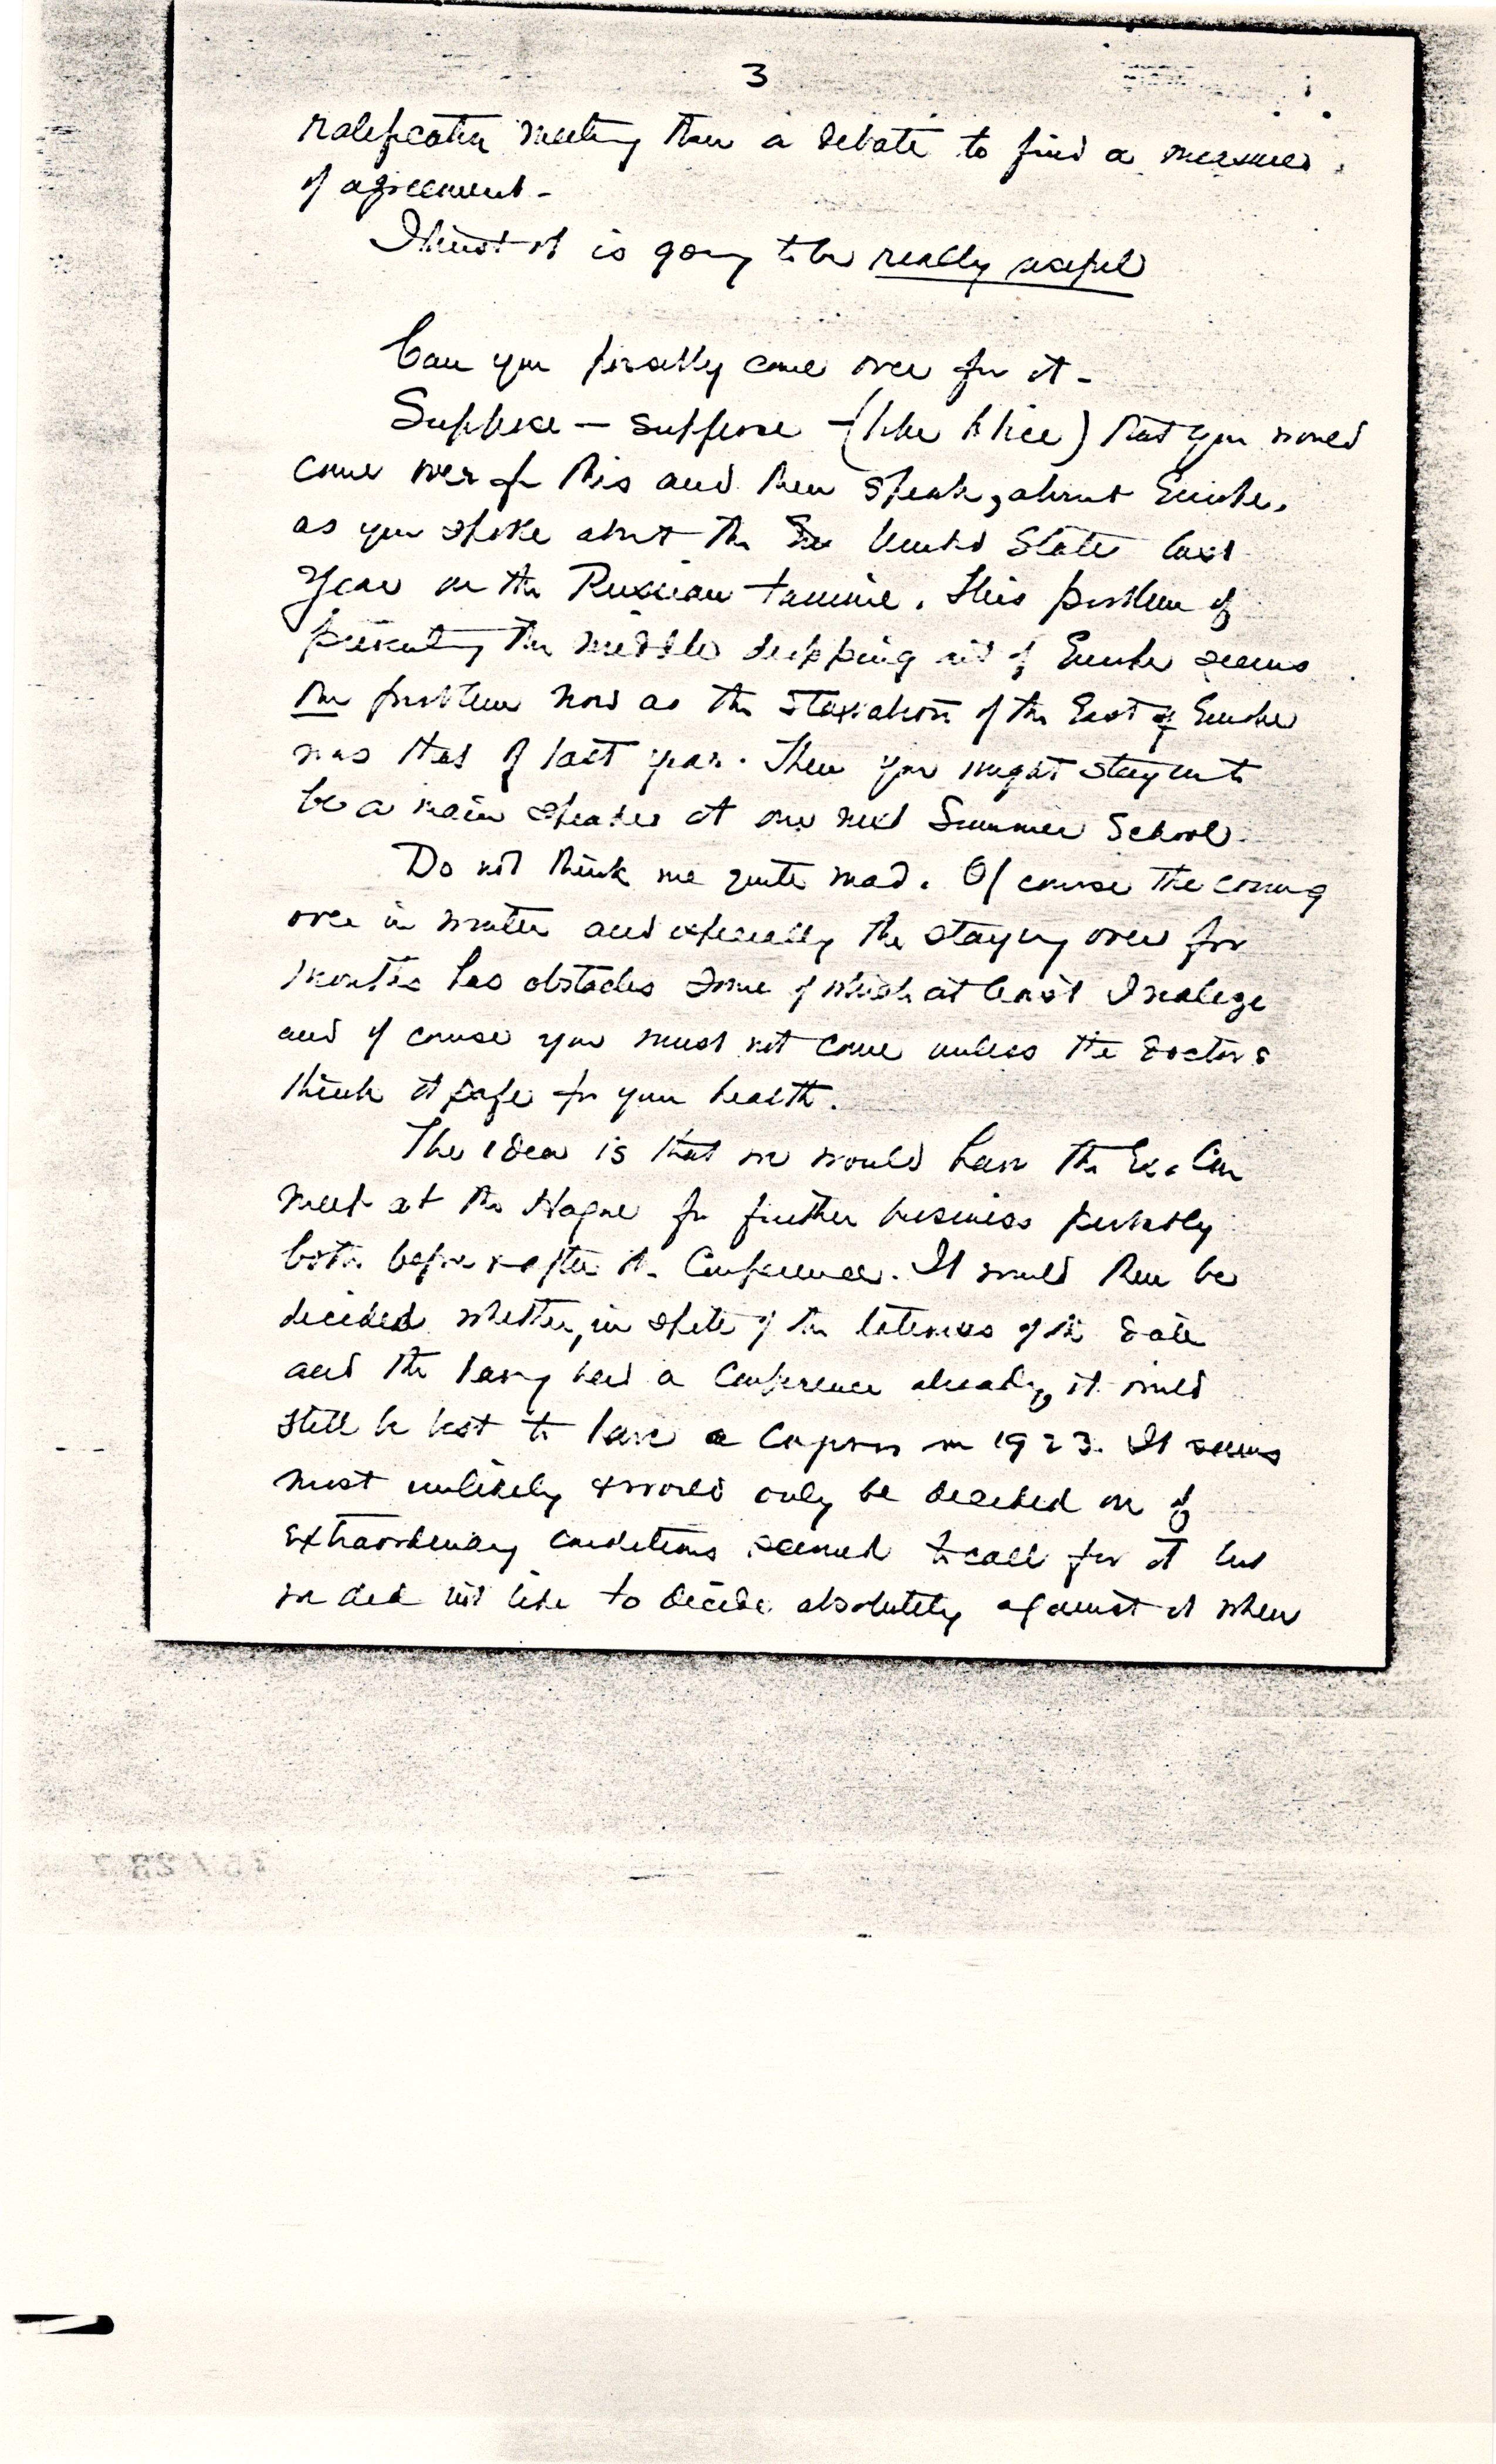 3
ratification meeting than a debate to find a measure
of agreement -
I trust it is going to be really useful
Can you possibly come over for it -
Suppose — suppose - (like Alice) that you would
come over for this and then speak, about Europe,
as you spoke about the United States last
Year on the Russian famine. This problem of
preventing the middle dropping out of Europe seems
the problem now as the starvation of the East of Europe
was that of last year. Then you might stay on to
be a main speaker at our next Summer School.
Do not think me quite mad. Of course the coming
over in winter and especially the staying over for
months has obstacles some of which at least I realize
and of course you must not come unless the Doctors
think it safe for your health.
The idea is that we would have the Ex. Com
meet at the Hague for further business probably
both before & after the Conference. It would then be
decided whether, in spite of the lateness of the date
and the having had a Conference already, it would
still be best to have a Congress in 1923. It seems
most unlikely & would only be decided on if
extraordinary conditions seemed to call for it but
we did not like to decide absolutely against it when